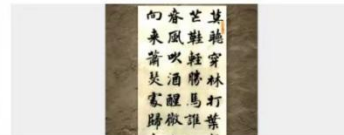 莫聽穿林打葉
芒鞋輕勝馬誰
春風吹酒醒微
向来蕭瑟處歸